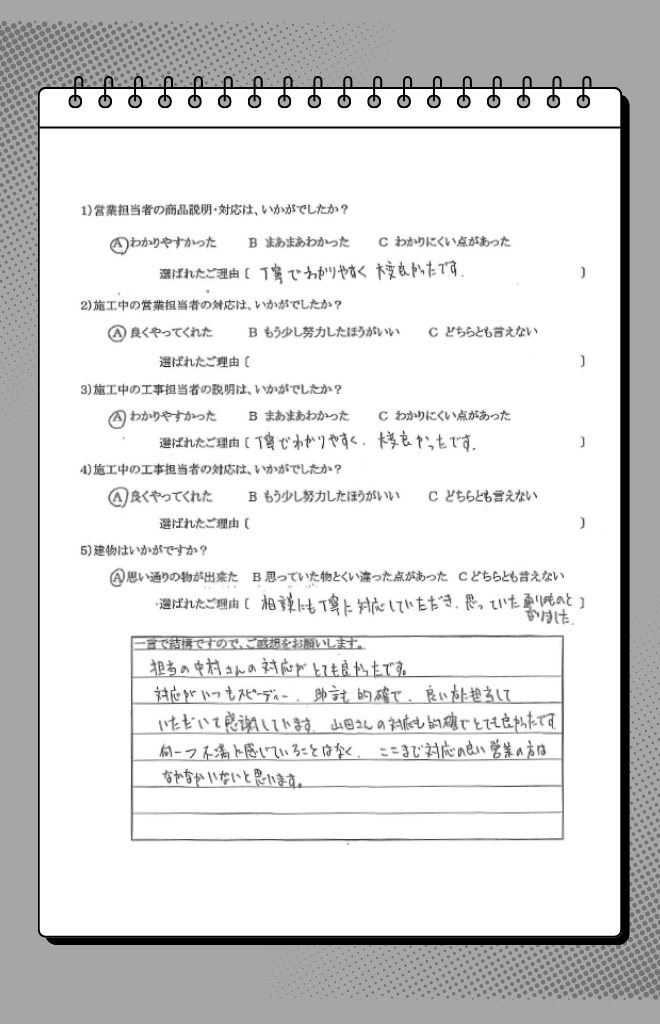 1)営業担当者の商品説明・対応は、いかがでしたか？
A わかりやすかった B まあまあわかった C わかりにくい点があった
選ばれたご理由〔 丁寧でわかりやすく 大変良かったです。 〕
2)施工中の営業担当者の対応は、いかがでしたか？
A 良くやってくれた B もう少し努力したほうがいい C どちらとも言えない
選ばれたご理由〔 〕
3)施工中の工事担当者の説明は、いかがでしたか？
A わかりやすかった B まあまあわかった C わかりにくい点があった
選ばれたご理由〔 丁寧でわかりやすく、大変良かったです。 〕
4)施工中の工事担当者の対応は、いかがでしたか？
A 良くやってくれた B もう少し努力したほうがいい C どちらとも言えない
選ばれたご理由〔 〕
5)建物はいかがですか？
A 思い通りの物が出来た B 思っていた物とくい違った点があった C どちらとも言えない
選ばれたご理由〔 相談にも丁寧に対応していただき、思っていた通りのものと 〕
なりました。
一言で結構ですので、ご感想をお願いします。
担当の中村さんの対応がとても良かったです。
対応がいつもスピーディー、助言も的確で、良い方に担当して
いただいて感謝しています。山田さんの対応も的確でとても良かったです。
何一つ不満に感じていることはなく、ここまで対応の良い営業の方は
なかなかいないと思います。